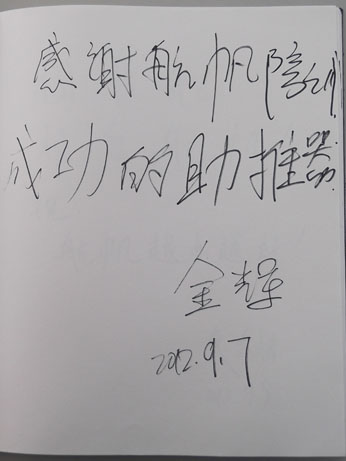 感谢航帆培训
成功的助推器
金辉
2012.9.7